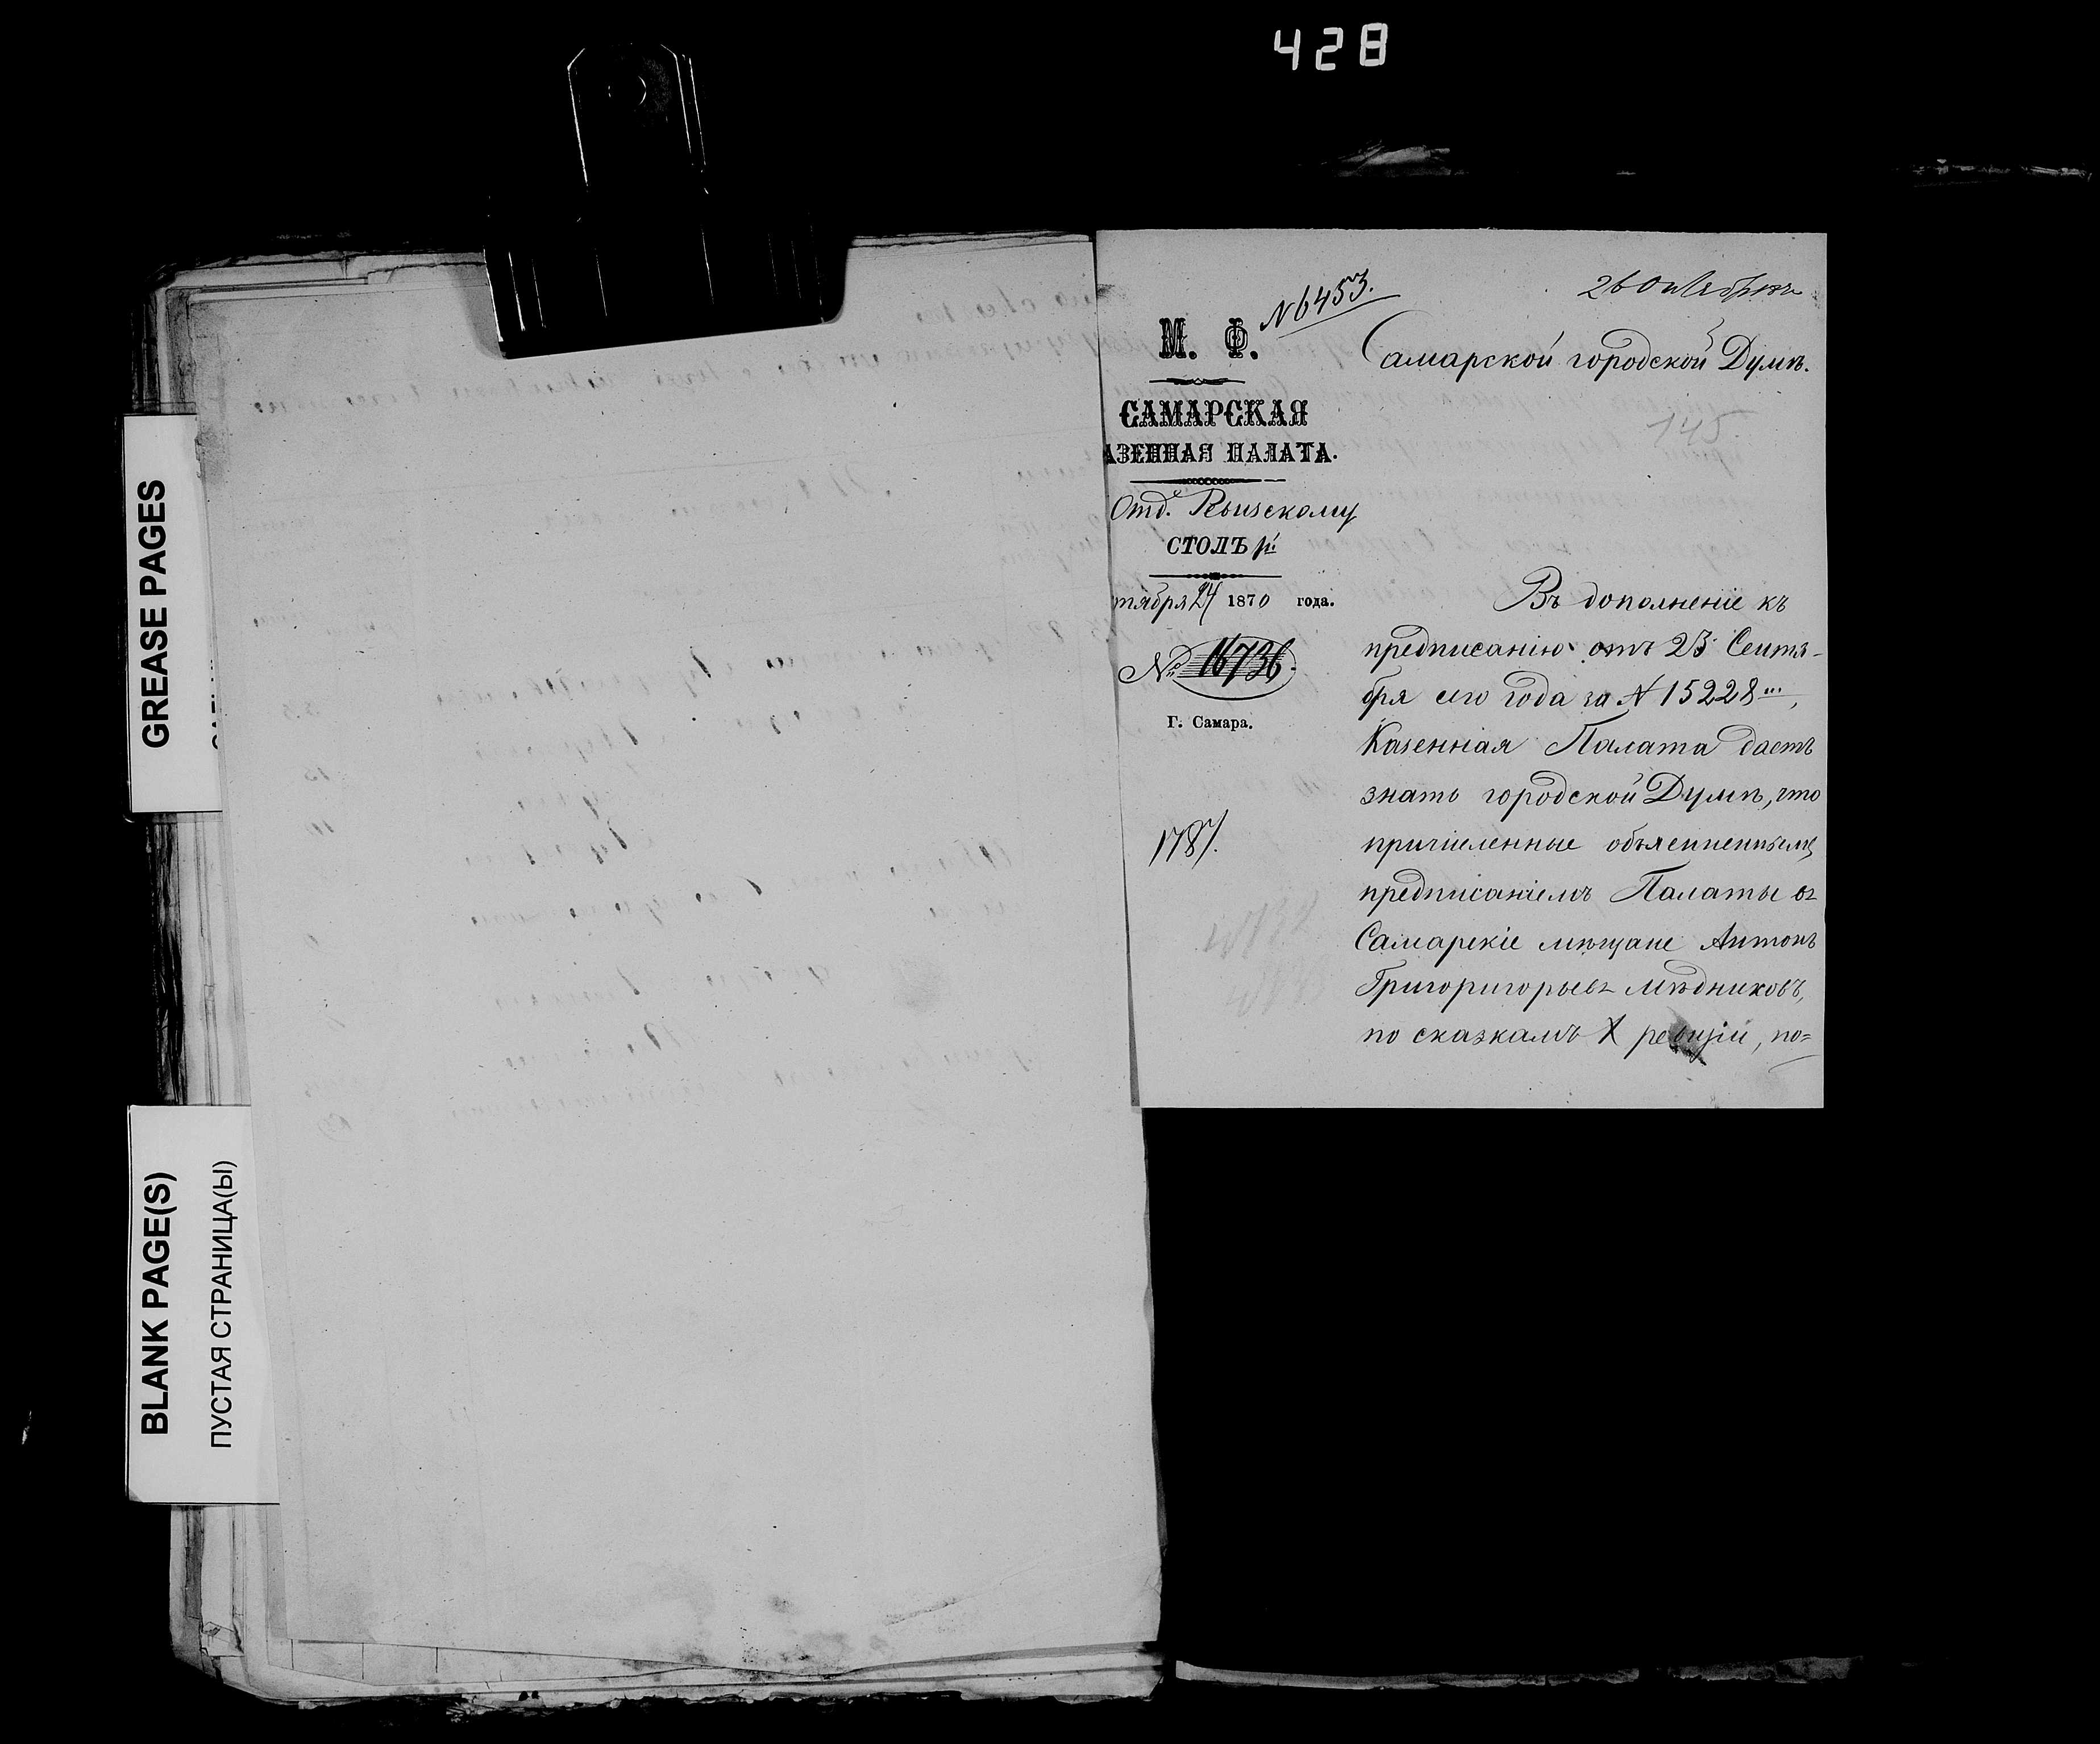 428
GREASE PAGES
BLANK PAGE(S)
ПУСТАЯ СТРАНИЦА(Ы)
№ 6453.
26 Октября
М. Ф.
САМАРСКАЯ
АЗЕННАЯ ПАЛАТА.
Отд. Ревизскому
СТОЛЪ
тября 24 1870 года.
№ 16736.
Г. Самара.
1787.
Самарской городской Думѣ.
145.
Въ дополненіе къ
предписанію отъ 23 Сентя-
бря сего года за № 15228,
Казенная Палата даетъ
знать городской Думѣ, что
причисленные
предписаніемъ Палаты въ
Самарскіе мѣщане Антонъ
Григоригорьевъ Мѣдниковъ,
по сказкамъ X ревизіи, по=